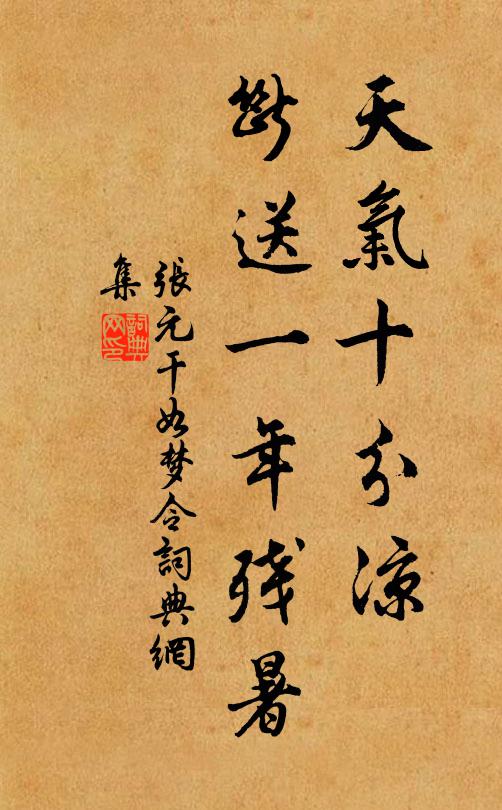 天氣十分涼
斷送一年残暑
張元干如梦令詞典網
集
詞典网印